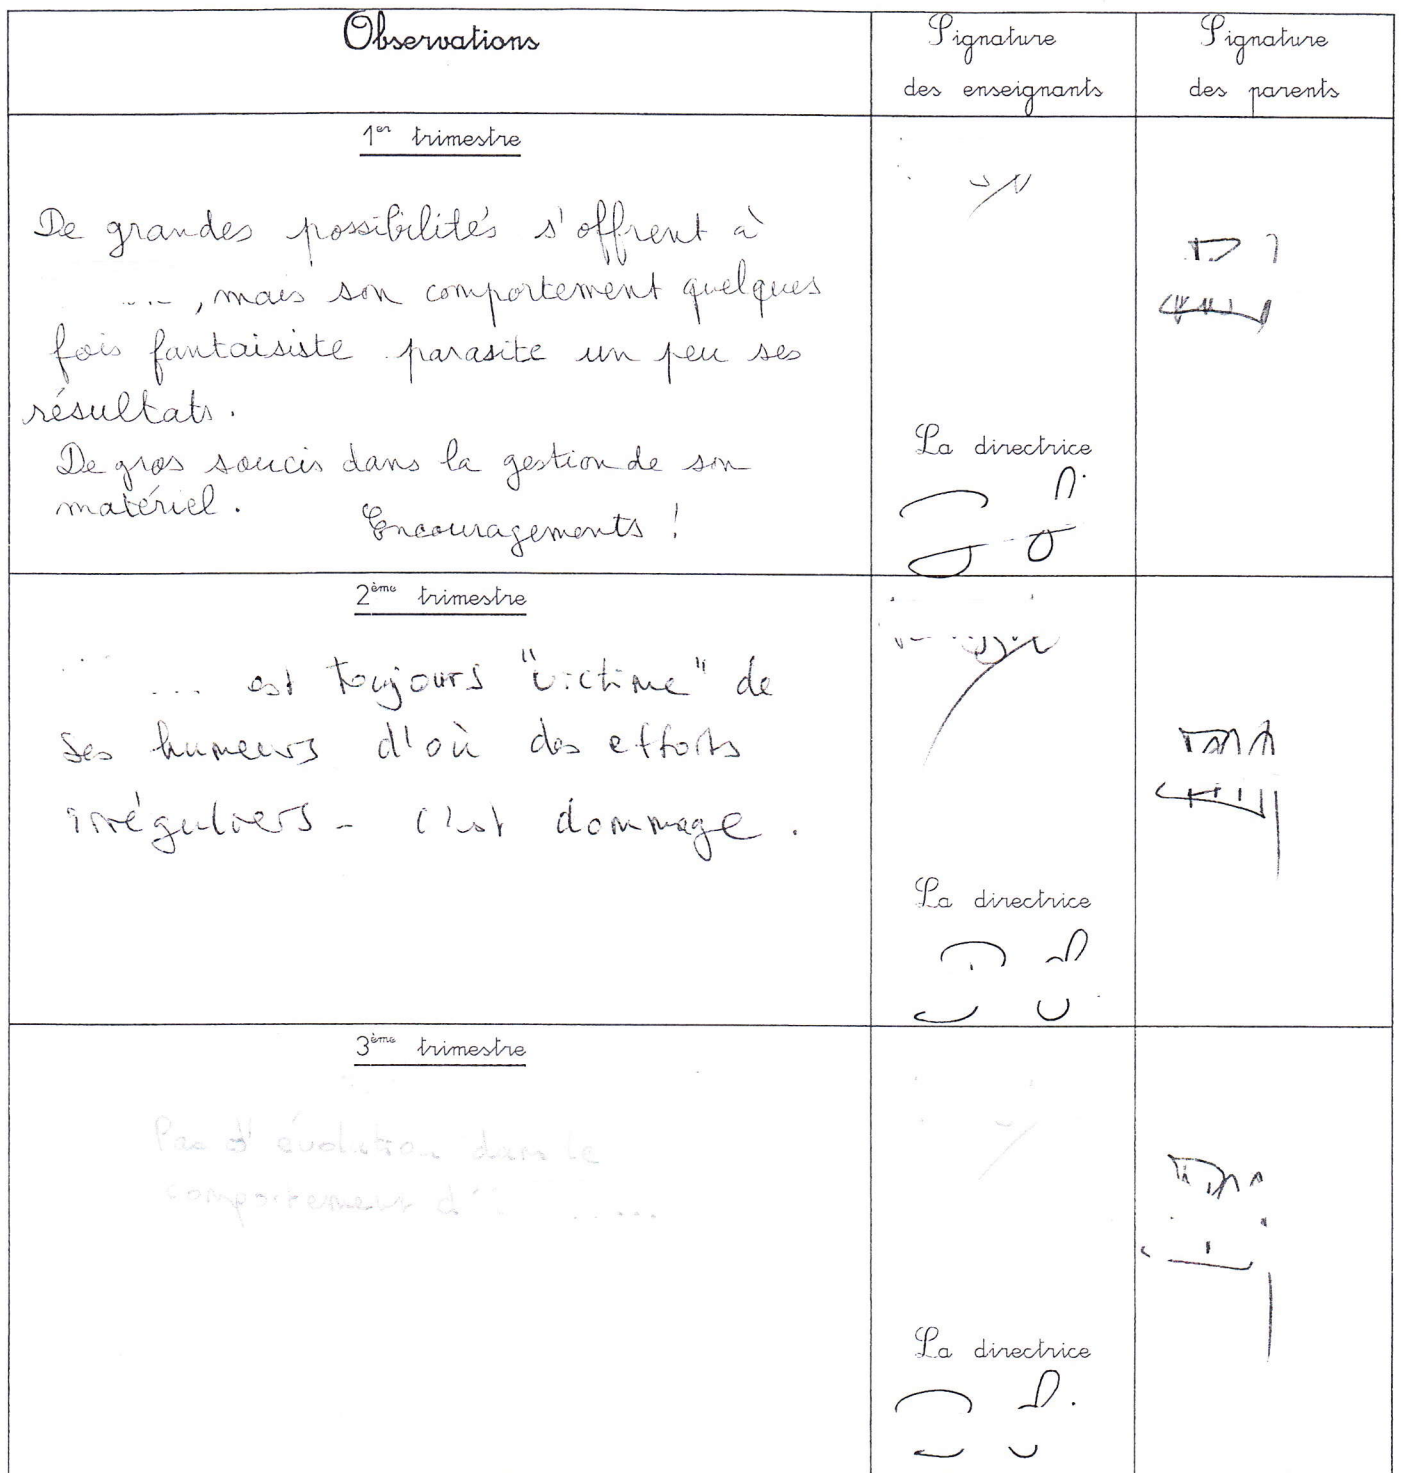 Observations
Signature
des enseignants
Signature
des parents
1er trimestre
De grandes possibilités s'offrent à
...., mais son comportement quelques
fois fantaisiste parasite un peu ses
résultats.
De gros soucis dans la gestion de son
matériel.
Encouragements !
La directrice
2ème trimestre
... est toujours "victime" de
ses humeurs d'où des efforts
irréguliers - c'est dommage.
La directrice
3ème trimestre
Pas d'évolution dans le
comportement d' .....
La directrice